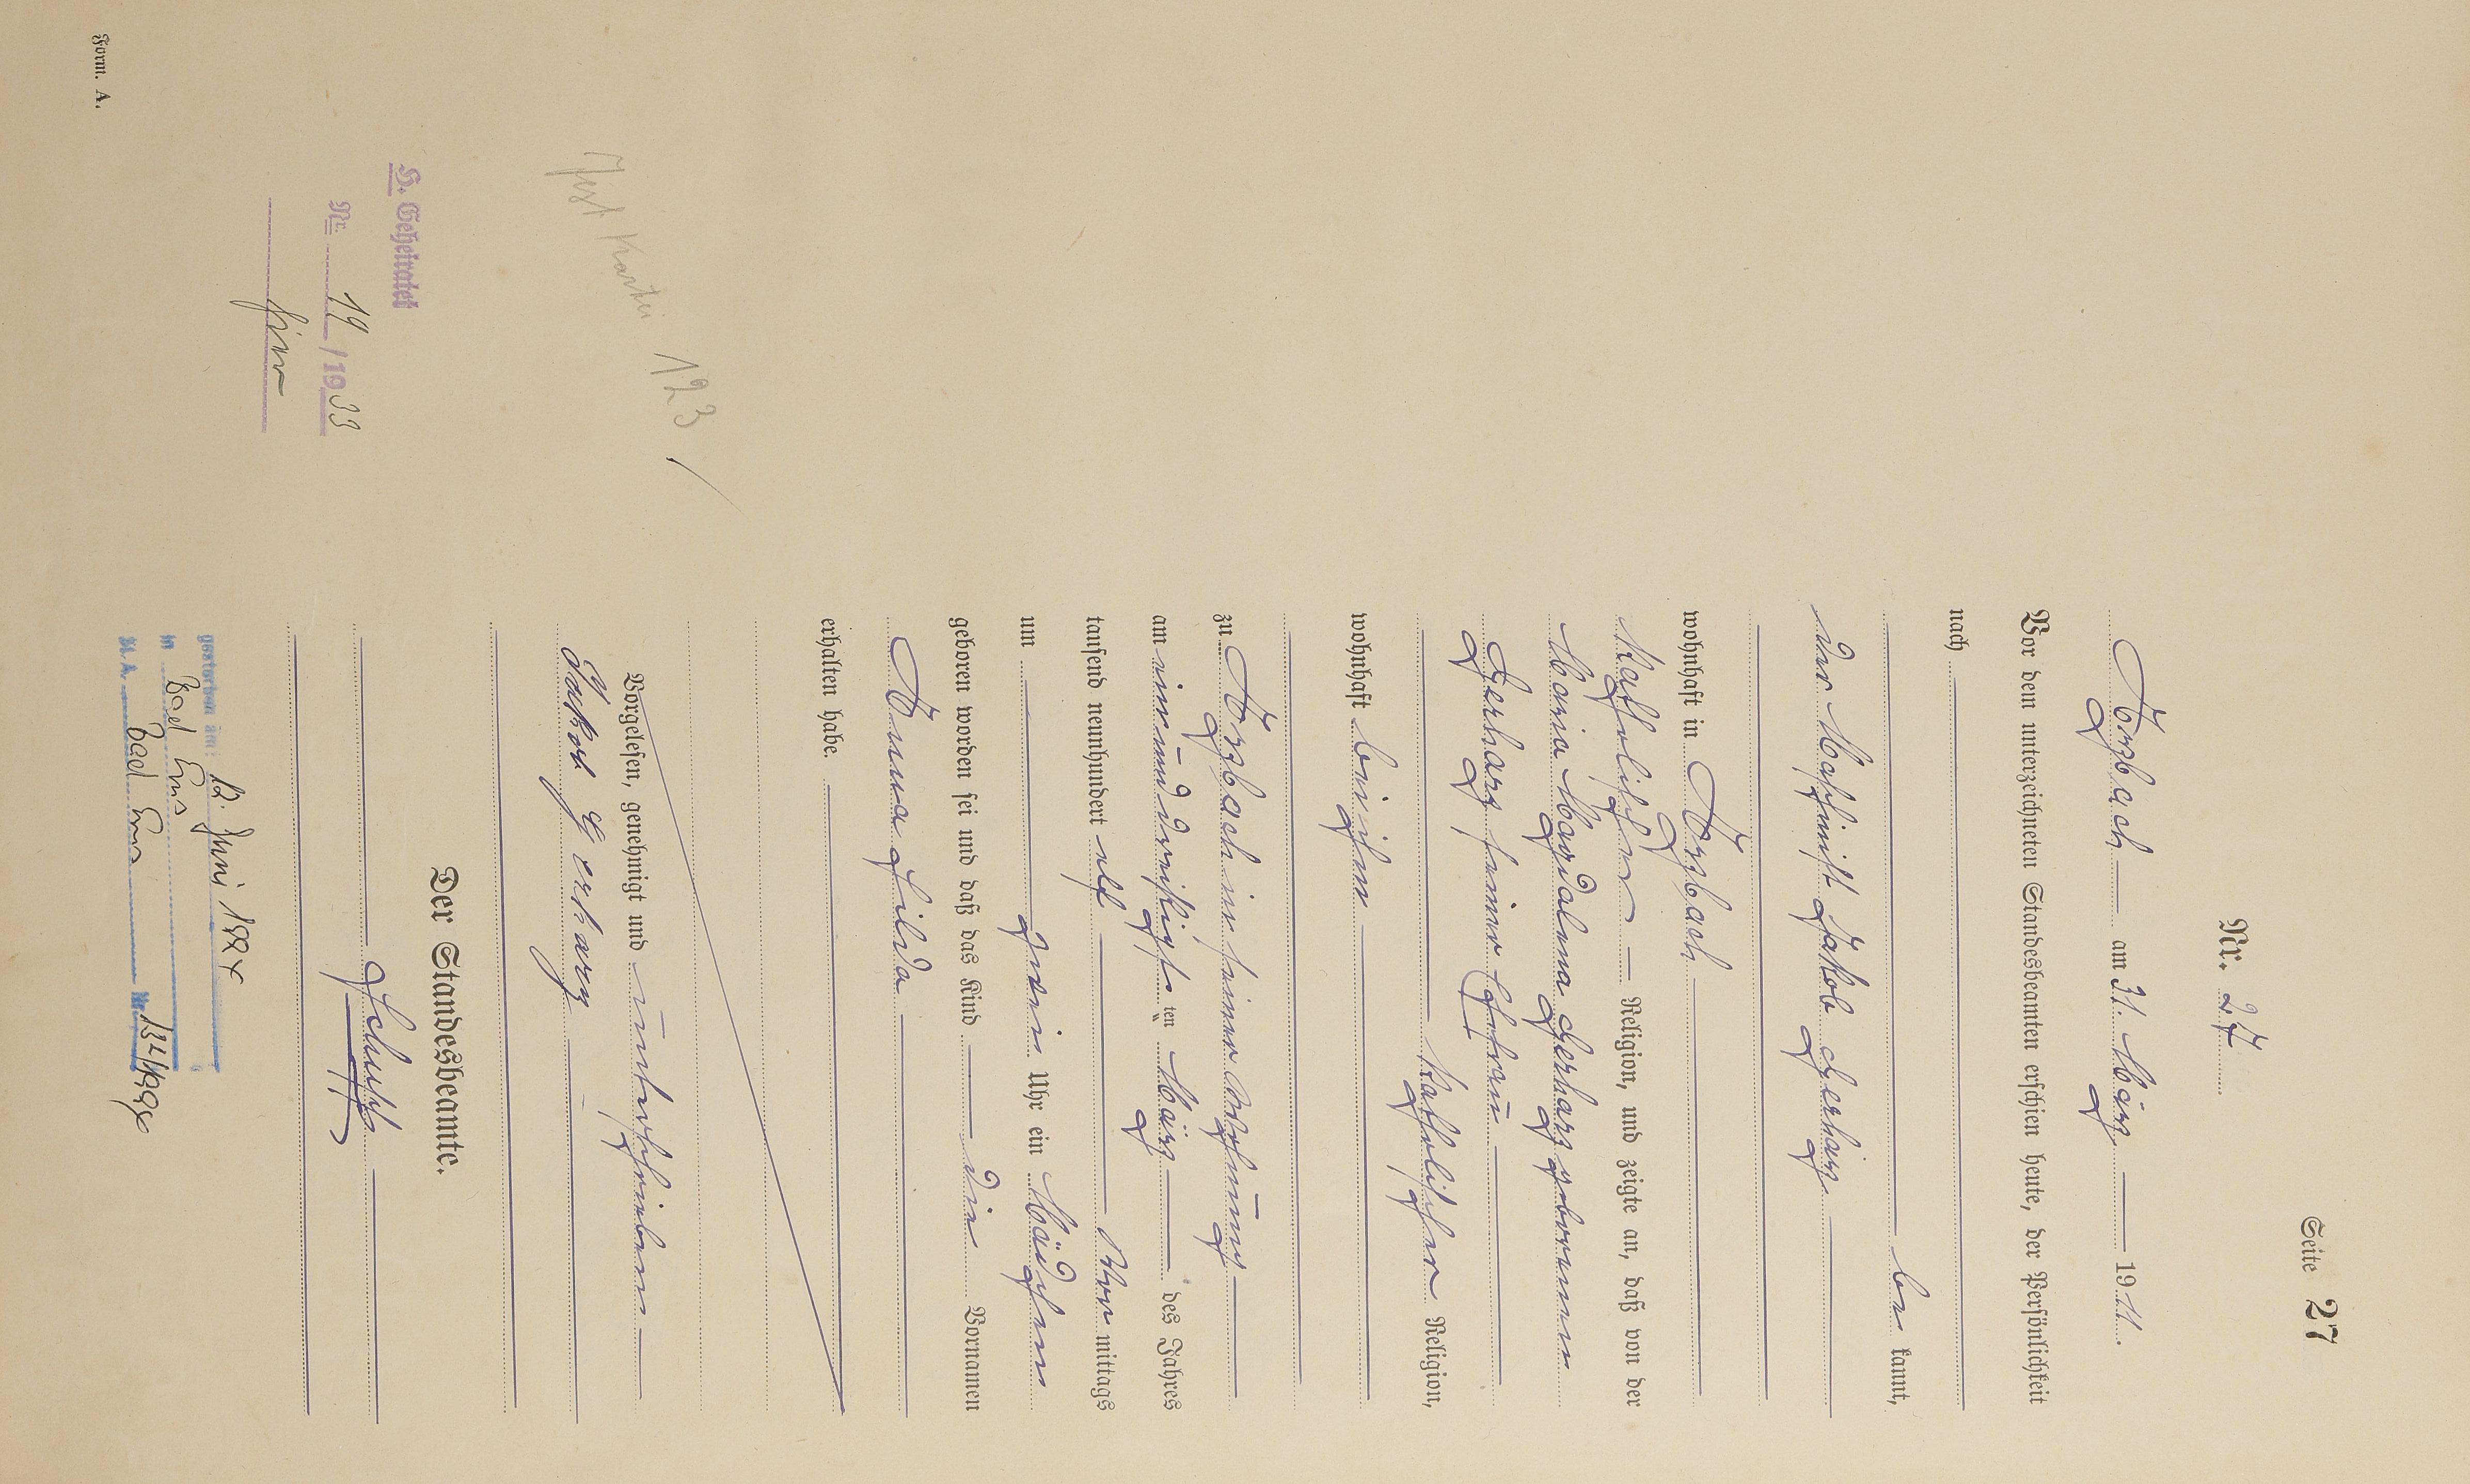 Seite 27
Nr. 27
Arzbach am 31. März 1911.
Vor dem unterzeichneten Standesbeamten erschien heute, der Persönlichkeit
nach
be kannt,
der Maschinist Jakob Gerharz
wohnhaft in Arzbach
Katholischer Religion, und zeigte an, daß von der
Maria Magdalena Gerharz geborenen
Gerharz seiner Ehefrau
Katholischer Religion,
wohnhaft bei ihm
zu Arzbach in seiner Wohnung
am einunddreißigs ten März des Jahres
tausend neunhundert elf Vor mittags
um zwei Uhr ein Mädchen
geboren worden sei und daß das Kind die Vornamen
Anna Hilda
erhalten habe.
Vorgelesen, genehmigt und unterschrieben
Jakob Gerharz
Der Standesbeamte.
123
H. Geheiratet
Nr. 19/1933
hier
gestorben am: 12. Juni
in Bad Ems
St. A. Bad Ems Nr.
Form. A.